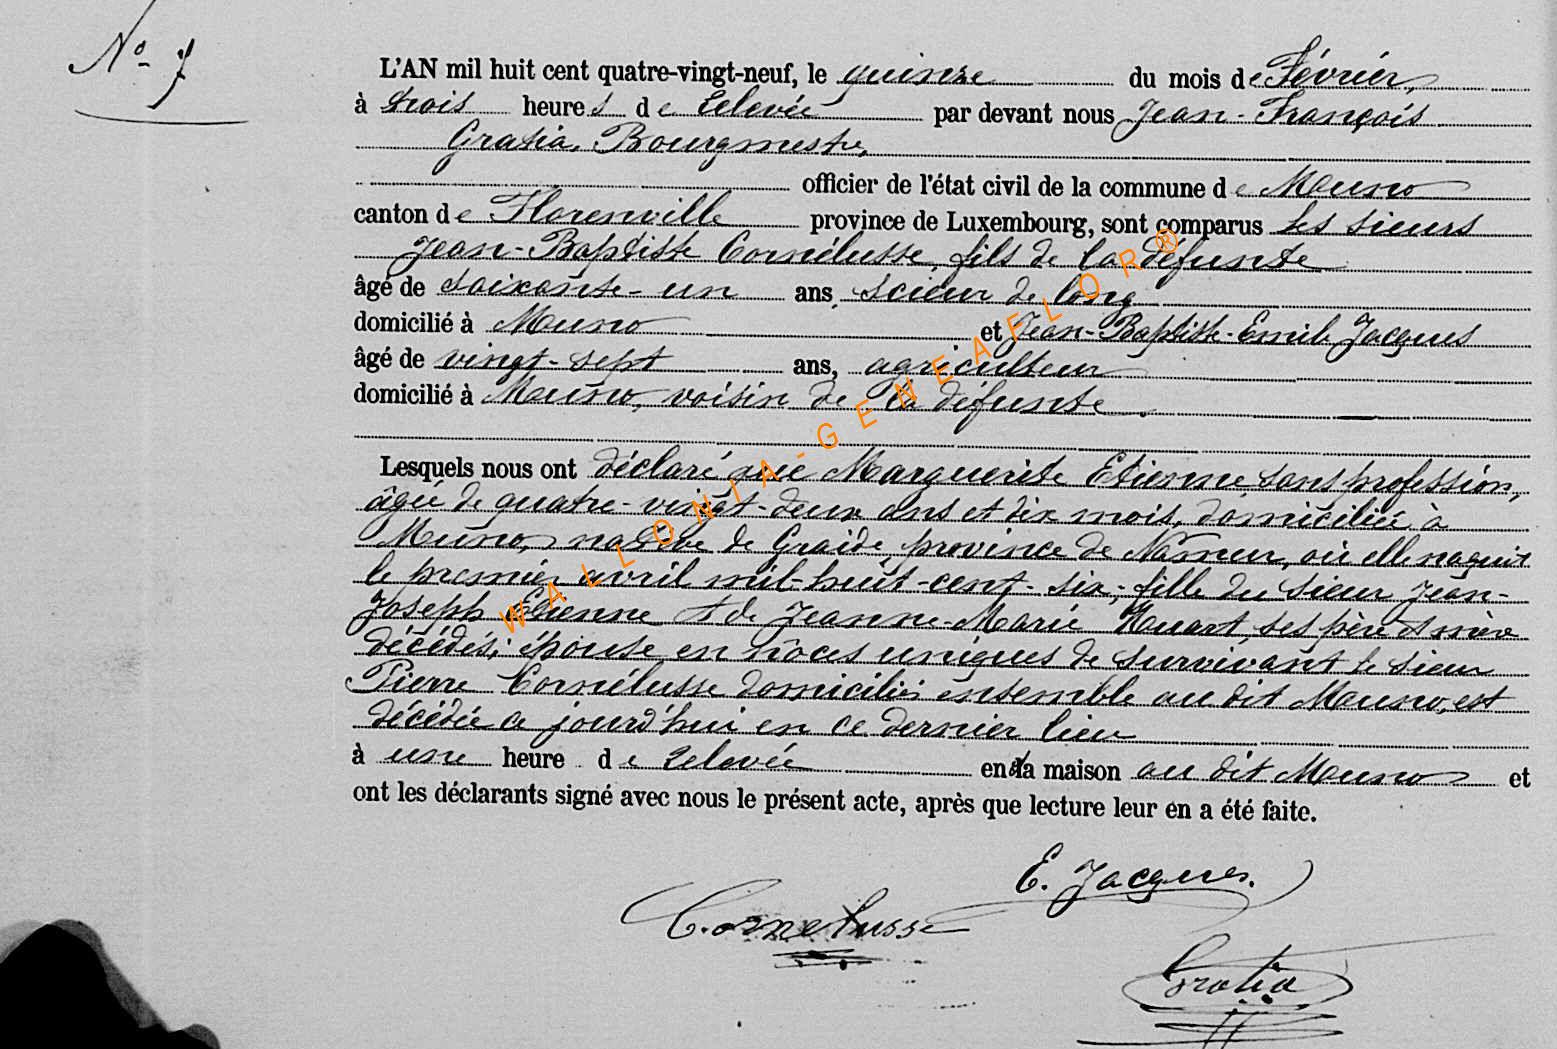 N° 7
L'AN mil huit cent quatre-vingt-neuf, le quinze du mois de Février,
à trois heures de relevée par devant nous Jean-François
Gratia, Bourgmestre,
officier de l'état civil de la commune de Muno
canton de Florenville province de Luxembourg, sont comparus les sieurs
Jean-Baptiste Cornélusse, fils de la défunte
âgé de soixante-un ans, scieur de long
domicilié à Muno et Jean-Baptiste-Emile Jacques
âgé de vingt-sept ans, agriculteur
domicilié à Muno, voisin de la défunte.
Lesquels nous ont déclaré que Marguerite Etienne sans profession,
âgée de quatre-vingt-deux ans et dix mois, domiciliée à
Muno, native de Graide, province de Namur, où elle naquit
le premier avril mil-huit-cent-six, fille du sieur Jean-
Joseph Etienne et de Jeanne-Marie Huart, ses père et mère
décédés; épouse en nôces uniques de survivant le sieur
Pierre Cornélusse domiciliés ensemble au dit Muno, est
décédée ce jourd'hui en ce dernier lieu
à une heure de relevée en sa maison au dit Muno et
ont les déclarants signé avec nous le présent acte, après que lecture leur en a été faite.
E. Jacques.
Cornelusse
Gratia
WALLONIA-GENEAFLOR®